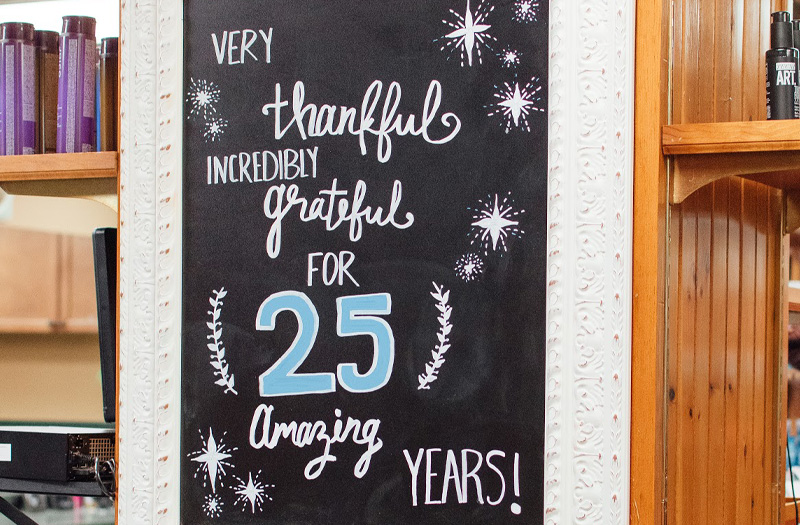 VERY
thankful
INCREDIBLY
grateful
FOR
25
Amazing
YEARS!
ART.